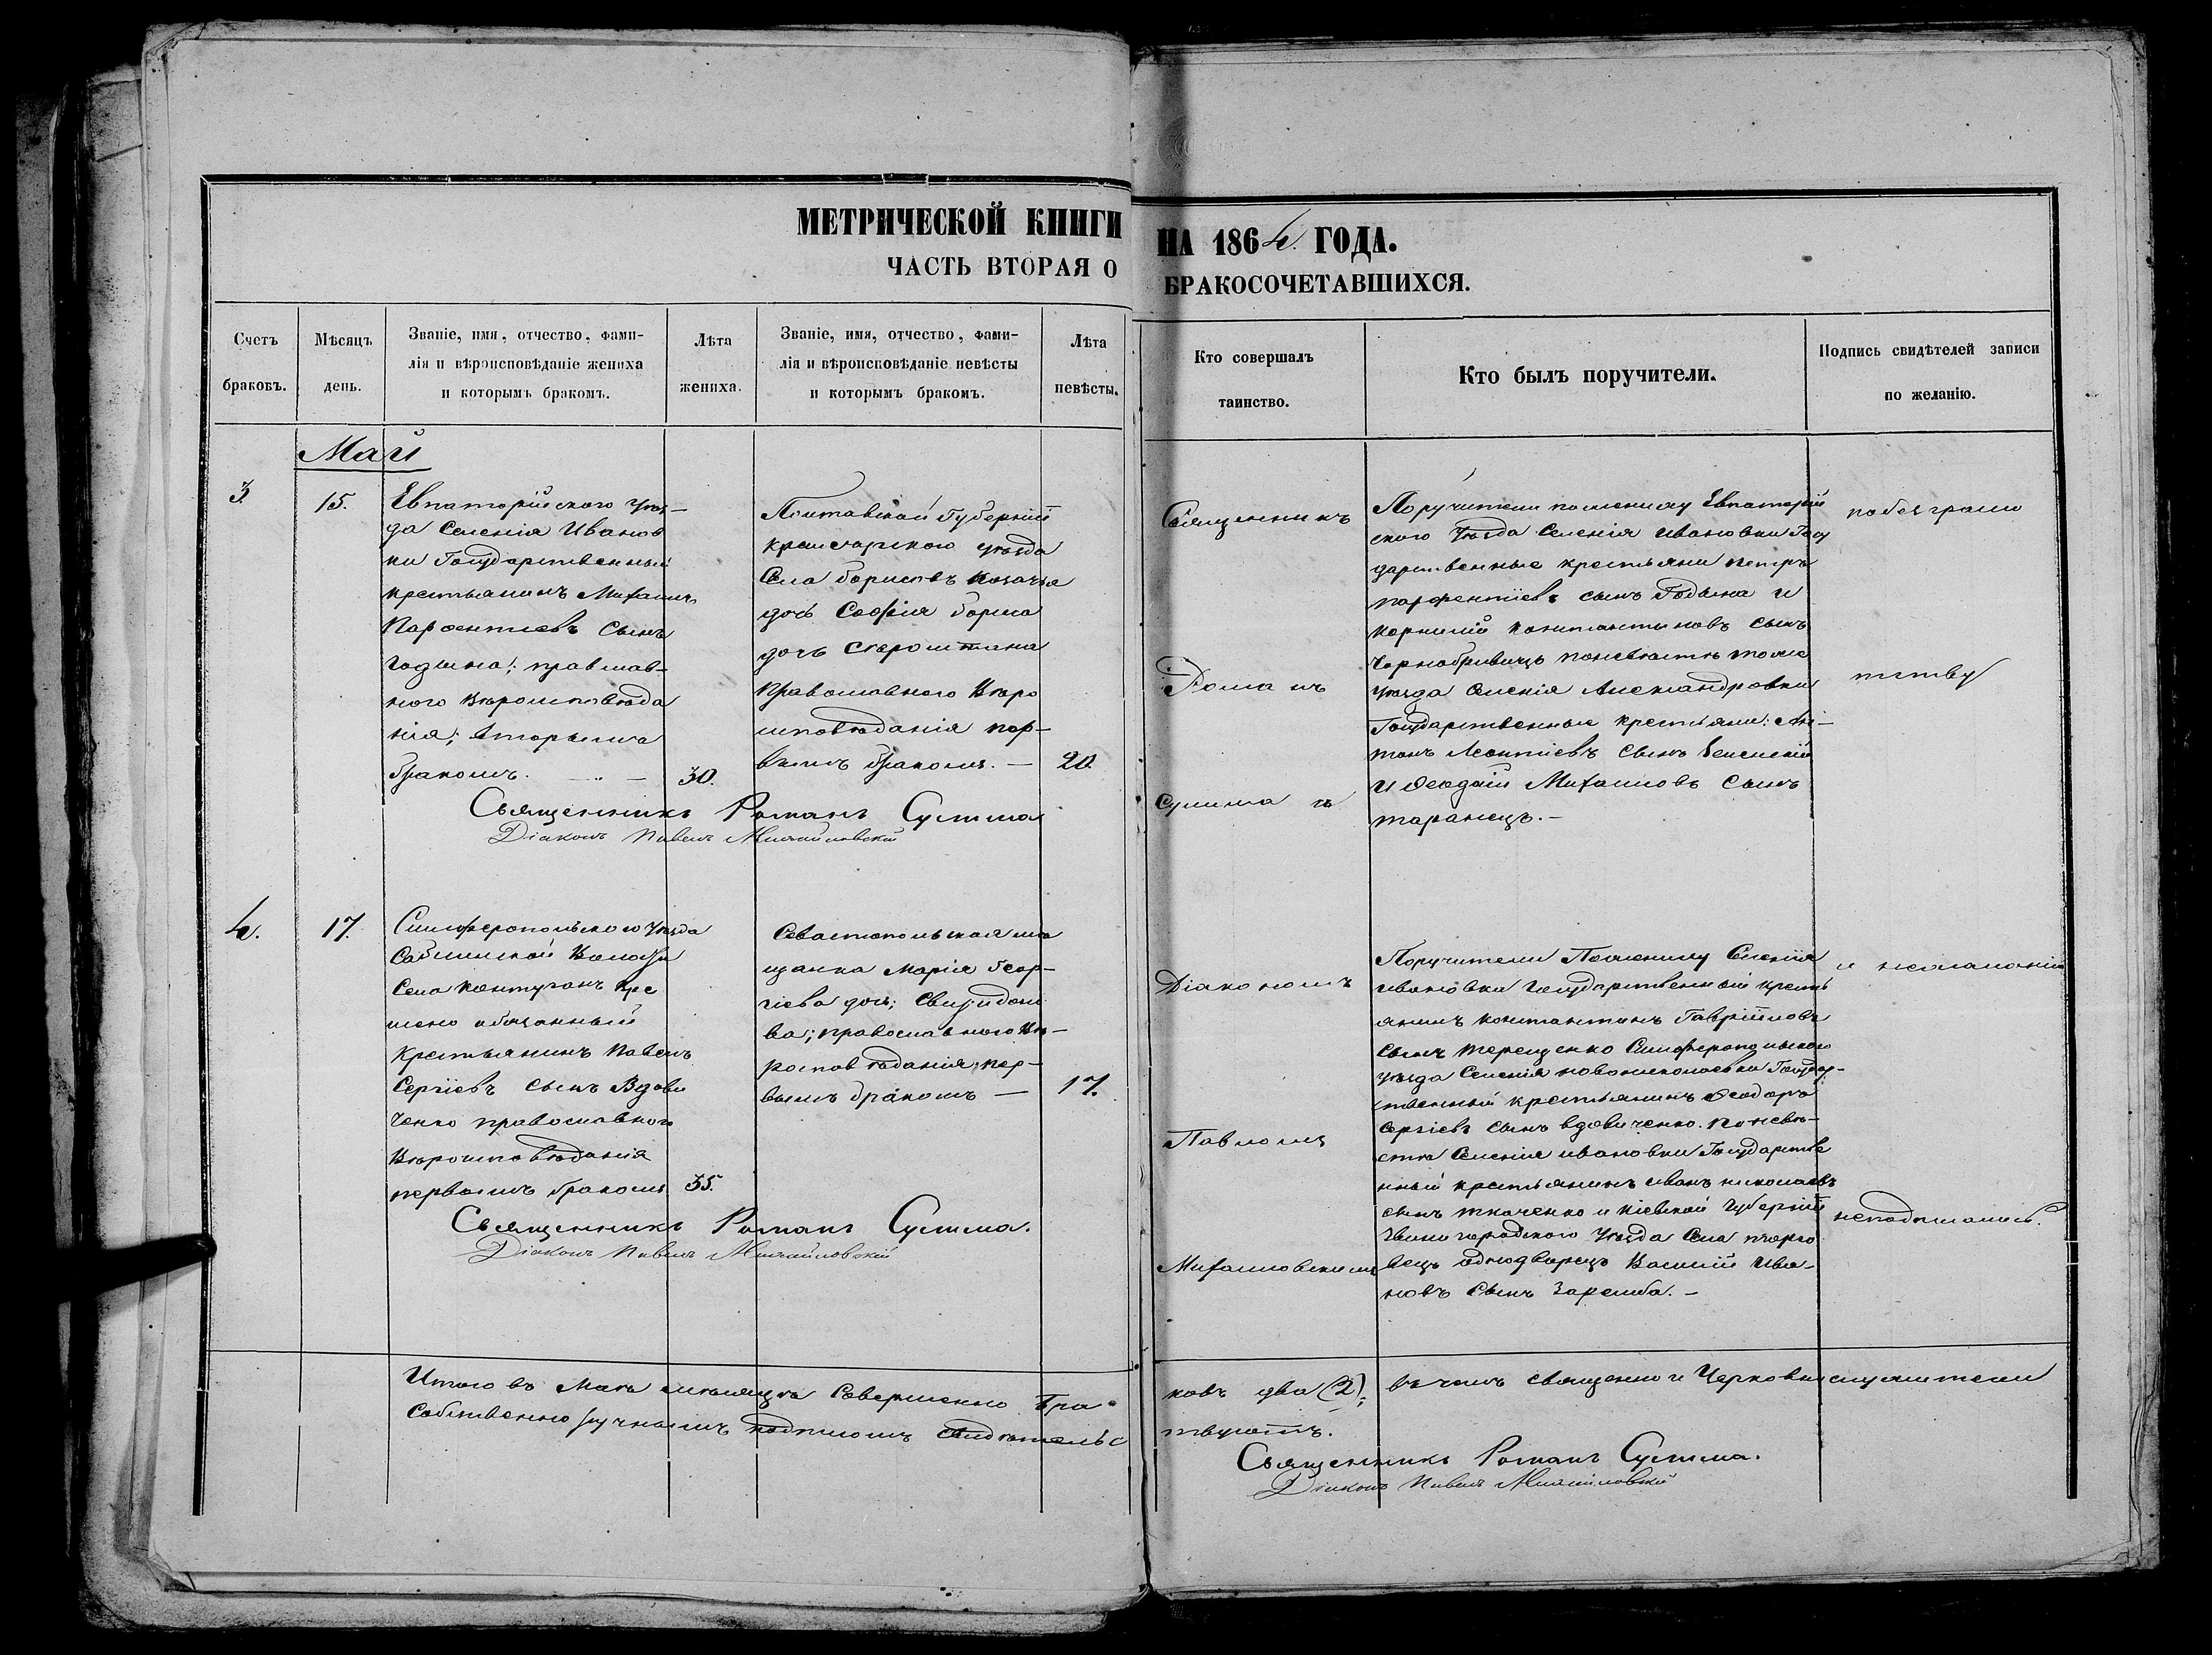 МЕТРИЧЕСКОЙ КНИГИ НА 1864. ГОДА.
ЧАСТЬ ВТОРАЯ О БРАКОСОЧЕТАВШИХСЯ.
Счетъ браковъ.
Мѣсяцъ день.
Званіе, имя, отчество, фами-
лія и вѣроисповѣданіе жениха
и которымъ бракомъ.
Лѣта жениха.
Званіе, имя, отчество, фами-
лія и вѣроисповѣданіе невѣсты
и которымъ бракомъ.
Лѣта невѣсты.
Кто совершалъ
таинство.
Кто былъ поручители.
Подпись свидѣтелей записи
по желанію.
Май
3.
15.
Евпаторійского Уѣз-
да Селенія Иванов
ки Государственный
крестьянинъ Михаилъ
Парфентіевъ Сынъ
Годына; православ-
ного Вѣроисповѣда
нія; вторымъ
бракомъ. —
30.
Полтавской Губерніи
уѣзда
Села Козачья
дочь Софія
дочь
Православного Вѣро
исповѣданія пер-
вымъ бракомъ. —
20.
Священникъ
Романъ
Сулима и
Поручители по жениху Евпаторій
ского Уѣзда Селенія Ивановки Госу
дарственные крестьяни Петръ
Парфентіевъ сынъ Годына и
Корнилій Константиновъ Сынъ
Чернобривецъ по невѣстѣ того же
Уѣзда Селенія Александровки
Государственные крестьяни: Ан-
тонъ Леонтіевъ Сынъ
и Михаиловъ Сынъ
таранецъ. —
Священникъ Романъ Сулима
Діаконъ Павелъ Михайловскій
4.
17.
Симферопольского Уѣзда
Саблинской Волости
Села вре
менно обязанный
Крестьянинъ Павелъ
Сергіевъ Сынъ Вдови
ченко православного
Вѣроисповѣданія
первымъ бракомъ
35.
Севастопольская мѣ
щанка Марія Геор-
гіева дочь;
ва; православного Вѣ-
роисповѣданія; пер-
вымъ бракомъ —
17.
Діакономъ
Павломъ
Михаиловскимъ
Поручители По жениху Селенія
Ивановки Государственный крестъ
янинъ Константинъ Гавріиловъ
Сынъ Терещенко Симферопольского
Уѣзда Селенія Новониколаевки Государ-
ственный крестьянинъ Феодоръ
Сергіевъ сынъ Вдовиченко. По невѣ-
стѣ Селенія Ивановки Государстве
нный крестьянинъ Иванъ Николаевъ
сынъ Ткаченко и Кіевской Губерніи
Звенигородского Уѣзда Села
однодворецъ Василій Ива-
новъ Сынъ Заремба. —
неподписались.
Священникъ Романъ Сулима.
Діаконъ Павелъ Михайловскій
Итого въ Маѣ мѣсяцѣ Совершено Бра-
ковъ два (2); въ чемъ священно и Церковно служители
Собственно ручнымъ подписомъ Свидѣтельс
твуютъ.
Священникъ Романъ Сулима.
Діаконъ Павелъ Михайловскій